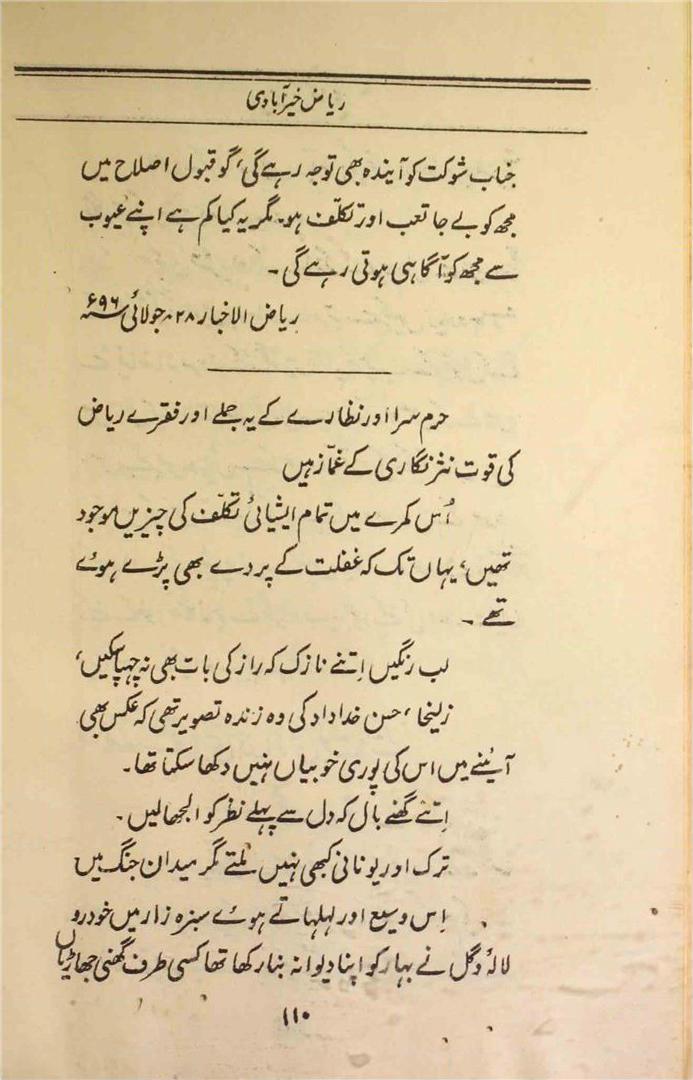 ریاض خیرآبادی
جناب شوکت کو آیندہ بھی توجہ رہے گی، گو قبول اصلاح میں
مجھ کو بے جا تعب اور تکلّف ہو۔ مگر یہ کیا کم ہے اپنے عیوب
سے مجھ کو آگاہی ہوتی رہے گی۔
ریاض الاخبار ۲۸ جولائی سنہ ۹۶ء
حرم سرا اور نظارے کے یہ جملے اور فقرے ریاض
کی قوت نثر نگاری کے غمّاز ہیں
اُس کمرے میں تمام ایشیائی تکلّف کی چیزیں موجود
تھیں، یہاں تک کہ غفلت کے پردے بھی پڑے ہوئے
تھے۔
لب رنگیں اِتنے نازک کہ راز کی بات بھی نہ چھپا سکیں،
زلیخا، حسن خداداد کی وہ زندہ تصویر تھی کہ عکس بھی
آئینے میں اس کی پوری خوبیاں نہیں دکھا سکتا تھا۔
اِتنے گھنے بال کہ دل سے پہلے نظر کو الجھا لیں۔
ترک اور یونانی کبھی نہیں ملتے مگر میدان جنگ میں
اِس وسیع اور لہلہاتے ہوئے سبزہ زار میں خودرو
لالہ و گل نے بہار کو اپنا دیوانہ بنا رکھا تھا کسی طرف گھنی جھاڑیاں
۱۱۰